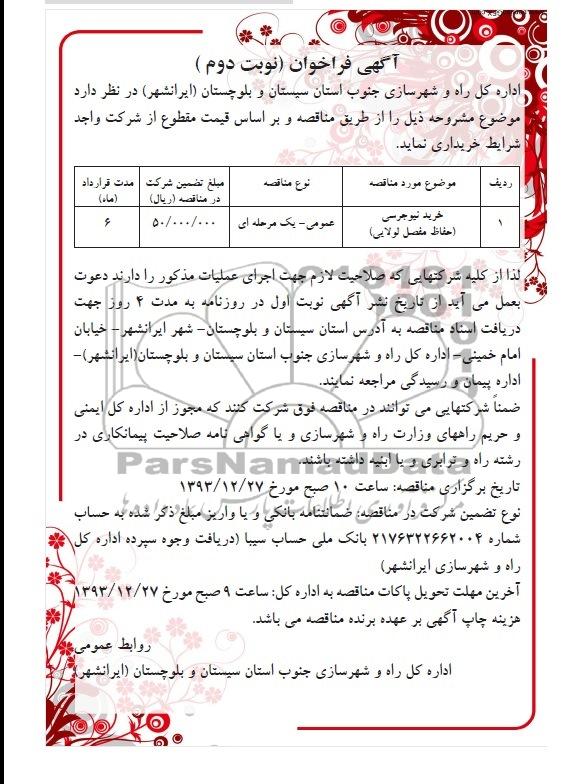 آگهی فراخوان (نوبت دوم )
اداره کل راه و شهرسازی جنوب استان سیستان و بلوچستان (ایرانشهر) در نظر دارد
موضوع مشروحه ذیل را از طریق مناقصه و بر اساس قیمت مقطوع از شرکت واجد
شرایط خریداری نماید.
ردیف موضوع مورد مناقصه نوع مناقصه مبلغ تضمین شرکت در مناقصه (ریال) مدت قرارداد (ماه)
۱ خرید نیوجرسی (حفاظ مفصل لولایی) عمومی- یک مرحله ای ۵۰/۰۰۰/۰۰۰ ۶
لذا از کلیه شرکتهایی که صلاحیت لازم جهت اجرای عملیات مذکور را دارند دعوت
بعمل می آید از تاریخ نشر آگهی نوبت اول در روزنامه به مدت ۴ روز جهت
دریافت اسناد مناقصه به آدرس استان سیستان و بلوچستان- شهر ایرانشهر- خیابان
امام خمینی- اداره کل راه و شهرسازی جنوب استان سیستان و بلوچستان(ایرانشهر)-
اداره پیمان و رسیدگی مراجعه نمایند.
ضمناً شرکتهایی می توانند در مناقصه فوق شرکت کنند که مجوز از اداره کل ایمنی
و حریم راههای وزارت راه و شهرسازی و یا گواهی نامه صلاحیت پیمانکاری در
رشته راه و ترابری و یا ابنیه داشته باشند.
ParsNamadData
تاریخ برگزاری مناقصه: ساعت ۱۰ صبح مورخ ۱۳۹۳/۱۲/۲۷
نوع تضمین شرکت در مناقصه: ضمانتنامه بانکی و یا واریز مبلغ ذکر شده به حساب
شماره ۲۱۷۶۳۲۲۶۶۲۰۰۴ بانک ملی حساب سیبا (دریافت وجوه سپرده اداره کل
راه و شهرسازی ایرانشهر)
آخرین مهلت تحویل پاکات مناقصه به اداره کل: ساعت ۹ صبح مورخ ۱۳۹۳/۱۲/۲۷
هزینه چاپ آگهی بر عهده برنده مناقصه می باشد.
روابط عمومی
اداره کل راه و شهرسازی جنوب استان سیستان و بلوچستان (ایرانشهر)